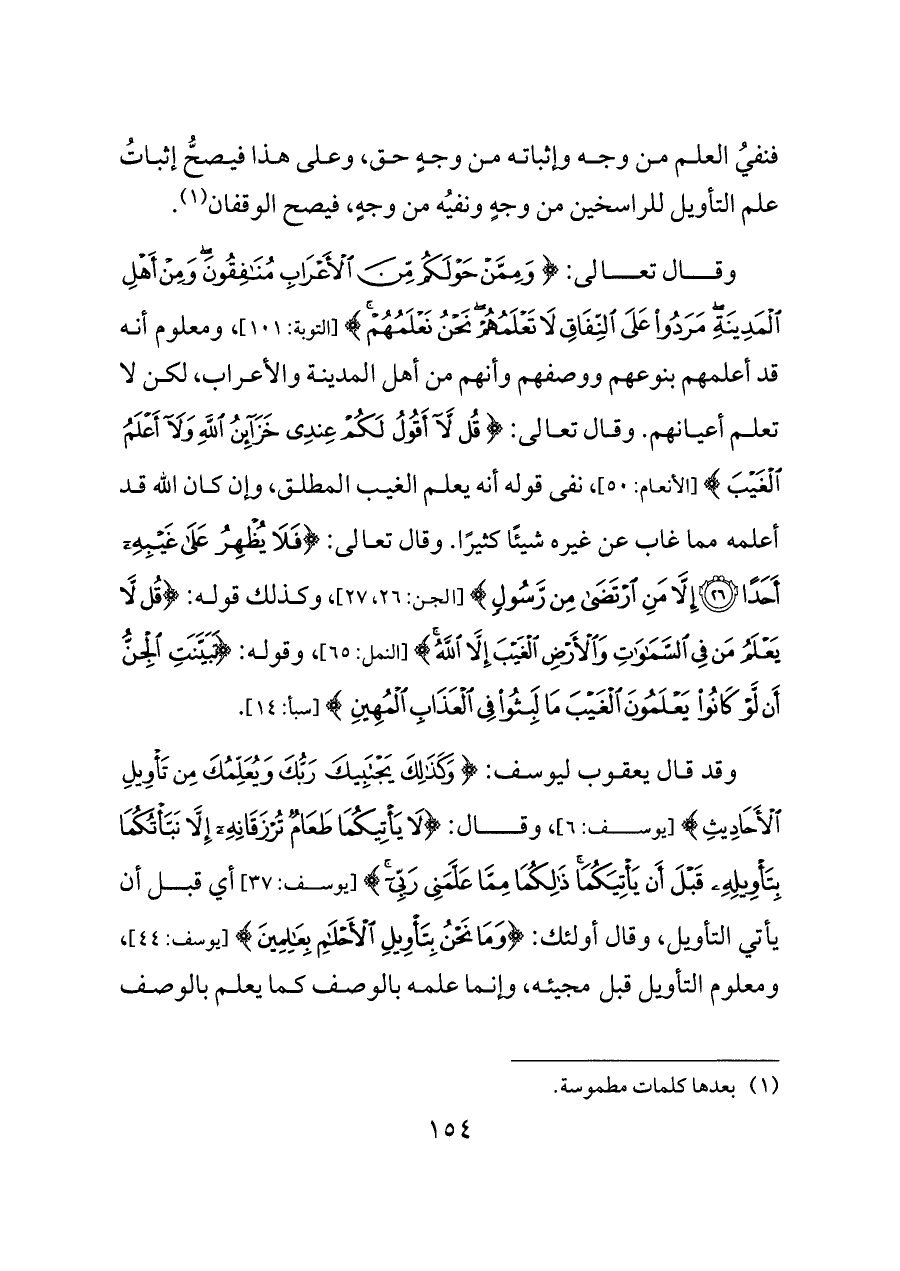 فنفيُ العلم من وجه وإثباته من وجهٍ حق، وعلى هذا فيصحُّ إثباتُ
علم التأويل للراسخين من وجهٍ ونفيُه من وجهٍ، فيصح الوقفان(١).
وقال تعالى: ﴿ وَمِمَّنْ حَوْلَكُم مِّنَ ٱلْأَعْرَابِ مُنَٰفِقُونَۖ وَمِنْ أَهْلِ
ٱلْمَدِينَةِۖ مَرَدُوا۟ عَلَى ٱلنِّفَاقِ لَا تَعْلَمُهُمْۖ نَحْنُ نَعْلَمُهُمْۚ ﴾ [التوبة: ١٠١]، ومعلوم أنه
قد أعلمهم بنوعهم ووصفهم وأنهم من أهل المدينة والأعراب، لكن لا
تعلم أعيانهم. وقال تعالى: ﴿ قُل لَّآ أَقُولُ لَكُمْ عِندِى خَزَآئِنُ ٱللَّهِ وَلَآ أَعْلَمُ
ٱلْغَيْبَ ﴾ [الأنعام: ٥٠]، نفى قوله أنه يعلم الغيب المطلق، وإن كان الله قد
أعلمه مما غاب عن غيره شيئًا كثيرًا. وقال تعالى: ﴿فَلَا يُظْهِرُ عَلَىٰ غَيْبِهِۦٓ
أَحَدًا ۝٢٦ إِلَّا مَنِ ٱرْتَضَىٰ مِن رَّسُولٍ ﴾ [الجن: ٢٦، ٢٧]، وكذلك قوله: ﴿قُل لَّا
يَعْلَمُ مَن فِى ٱلسَّمَٰوَٰتِ وَٱلْأَرْضِ ٱلْغَيْبَ إِلَّا ٱللَّهُۚ﴾ [النمل: ٦٥]، وقوله: ﴿تَبَيَّنَتِ ٱلْجِنُّ
أَن لَّوْ كَانُوا۟ يَعْلَمُونَ ٱلْغَيْبَ مَا لَبِثُوا۟ فِى ٱلْعَذَابِ ٱلْمُهِينِ ﴾ [سبأ: ١٤].
وقد قال يعقوب ليوسف: ﴿ وَكَذَٰلِكَ يَجْتَبِيكَ رَبُّكَ وَيُعَلِّمُكَ مِن تَأْوِيلِ
ٱلْأَحَادِيثِ ﴾ [يوسف: ٦]، وقال: ﴿لَا يَأْتِيكُمَا طَعَامٌ تُرْزَقَانِهِۦٓ إِلَّا نَبَّأْتُكُمَا
بِتَأْوِيلِهِۦ قَبْلَ أَن يَأْتِيَكُمَاۚ ذَٰلِكُمَا مِمَّا عَلَّمَنِى رَبِّىٓۚ ﴾ [يوسف: ٣٧] أي قبل أن
يأتي التأويل، وقال أولئك: ﴿وَمَا نَحْنُ بِتَأْوِيلِ ٱلْأَحْلَٰمِ بِعَٰلِمِينَ ﴾ [يوسف: ٤٤]،
ومعلوم التأويل قبل مجيئه، وإنما علمه بالوصف كما يعلم بالوصف
(١) بعدها كلمات مطموسة.
١٥٤